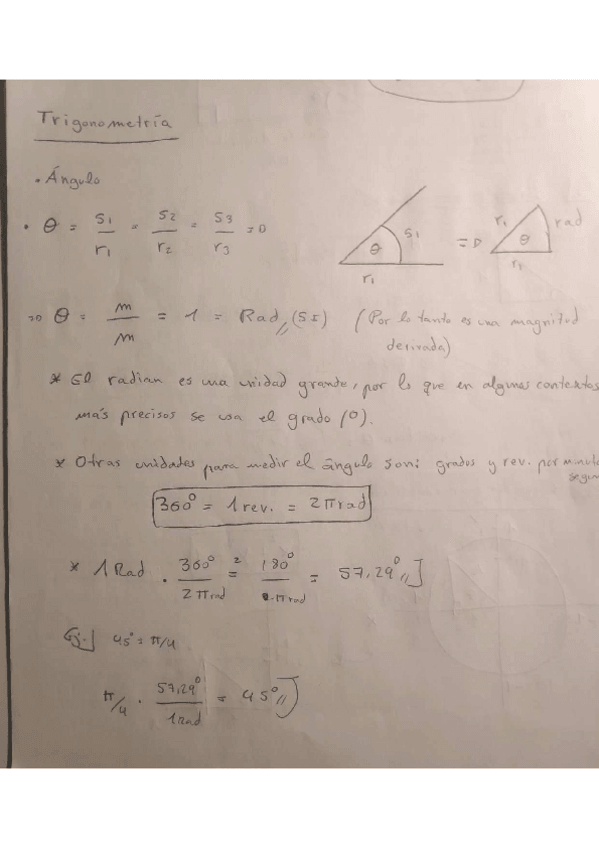 Trigonometría
• Ángulo
• θ = S1/r1 = S2/r2 = S3/r3 =D
S1 θ r1 =D r1 θ r1 rad
=D θ = m/m = 1 = Rad,, (SI) (Por lo tanto es una magnitud
derivada)
* El radian es una unidad grande, por lo que en algunos contextos
más precisos se usa el grado (º).
* Otras unidades para medir el ángulo son: grados y rev. por minuto
360° = 1 rev. = 2π rad
* 1 Rad · 360°/2π rad = 180°/π rad = 57,29°,,]
Ej.] 45° = π/4
π/4 · 57,29°/1 Rad = 45°,,]